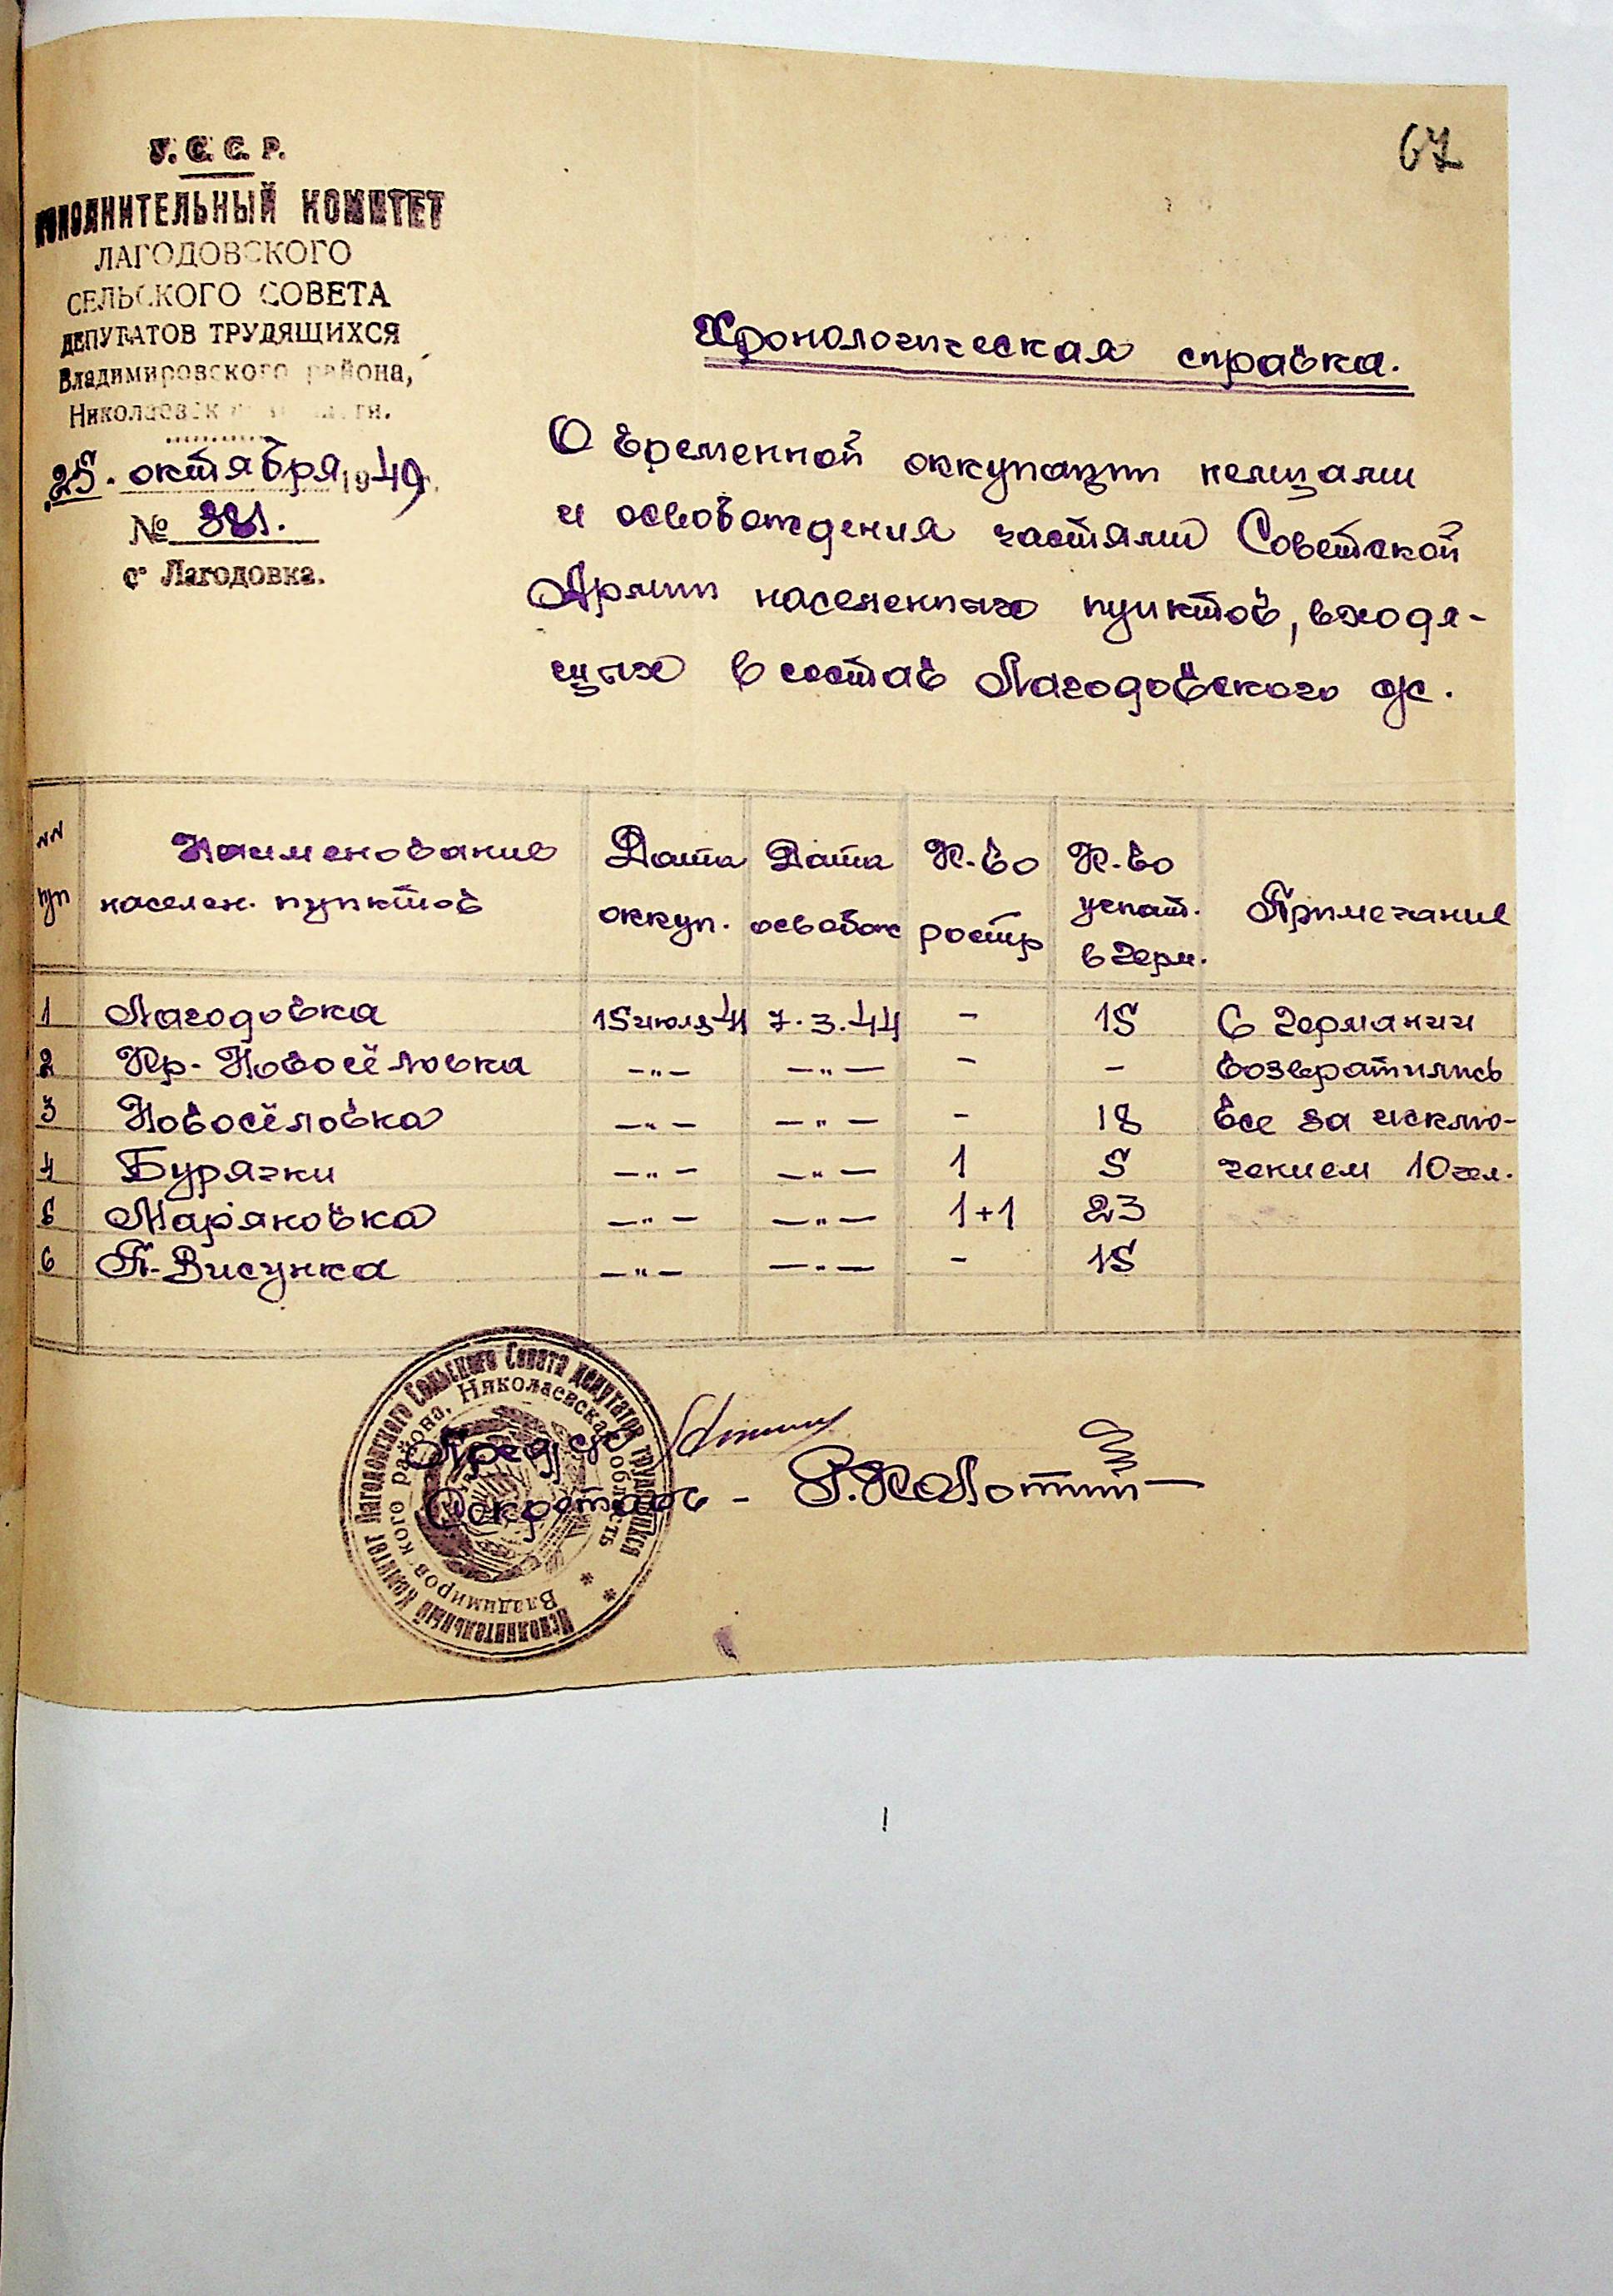 67
У. С. С. Р.
ИСПОЛНИТЕЛЬНЫЙ КОМИТЕТ
ЛАГОДОВСКОГО
СЕЛЬСКОГО СОВЕТА
ДЕПУТАТОВ ТРУДЯЩИХСЯ
Владимировского района,
Николаевск
25. октября 1949г.
№ 381.
с Лагодовка.
Хронологическая справка.
О временной оккупации немцами
и освобождения частями Советской
Армии населенных пунктов, входя-
щих в состав Лагодовского с/с.
№№ п/п Наименование населен. пунктов Дата оккуп. Дата освобож К-во расстр К-во угнат. в Герм. Примечание
1 Лагодовка 15 июля 41 7.3.44 - 15 С Германии
2 Кр-Новосёловка -"- -"- - - возвратились
3 Новосёловка -"- -"- - 18 все за исклю-
4 Бурячки -"- -"- 1 5 чением 10 чел.
5 Марьяновка -"- -"- 1+1 23
6 П-Висунка -"- -"- - 15
Пред с/с
Секретарь -
Исполнительный Комитет Лагодовского Сельского Совета депутатов трудящихся
Владимировского района, Николаевская область